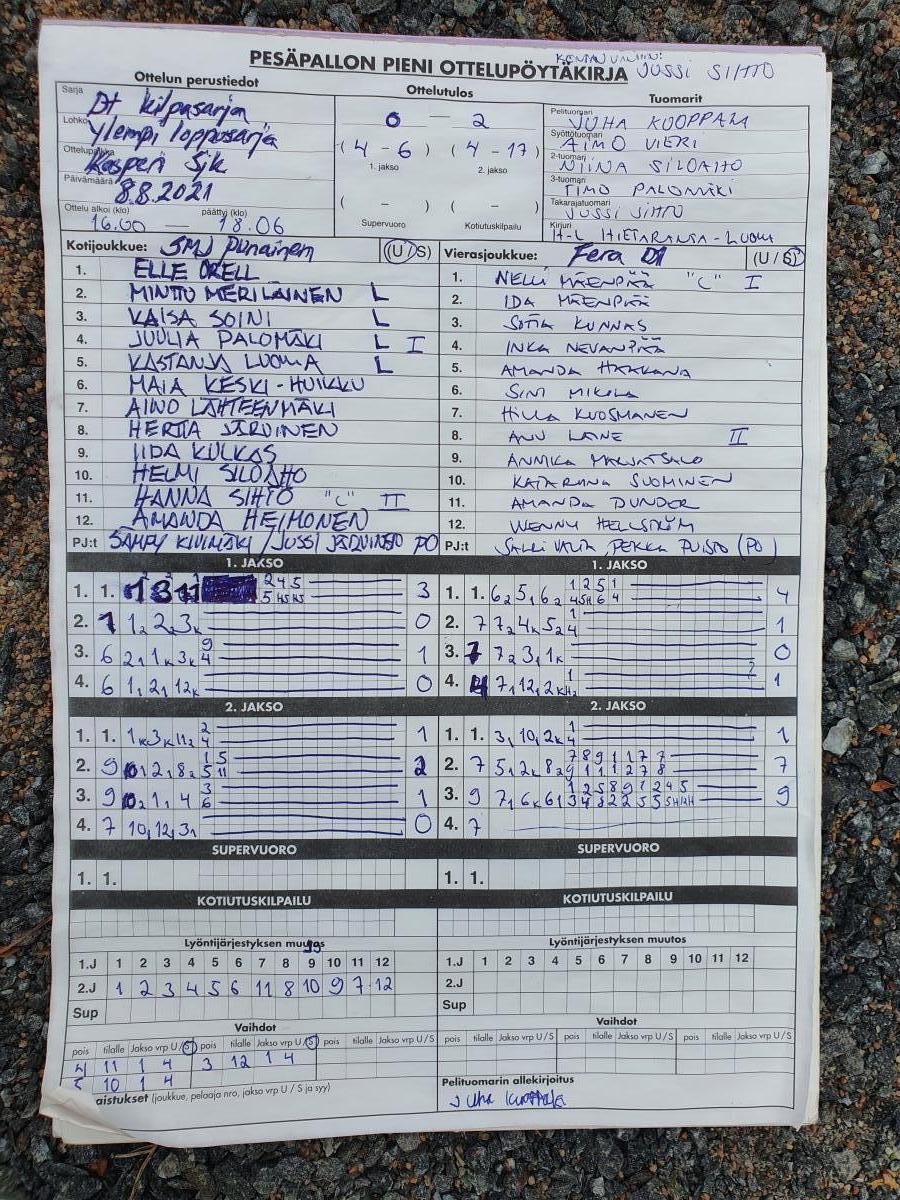 KENTÄN VALVOJA:
PESÄPALLON PIENI OTTELUPÖYTÄKIRJA JUSSI SIHTO
Ottelun perustiedot
Ottelutulos
Tuomarit
Sarja
Dt kilpasarja
Lohko
Ylempi loppusarja
Ottelupaikka
Kasperi Sjk
Päivämäärä
8.8.2021
Ottelu alkoi (klo) päättyi (klo)
16.00 — 18.06
0 — 2
(4 - 6) (4 - 17)
1. jakso 2. jakso
( - ) ( - )
Supervuoro Kotiutuskilpailu
Pelituomari
JUHA KUOPPALA
Syöttötuomari
AIMO VIERI
2-tuomari
NIINA SILOAHO
3-tuomari
TIMO PALOMÄKI
Takarajatuomari
JUSSI SIHTO
Kirjuri
H-L HIETARANTA-LUOMA
Kotijoukkue: SMJ Punainen (U/S)
1. ELLE ORELL
2. MINTTU MERILÄINEN L
3. KAISA SOINI L
4. JUULIA PALOMÄKI L I
5. KASTANJA LUOMA L
6. MAIA KESKI-HUIKKU
7. AINO LÄHTEENMÄKI
8. HERTTA JÄRVINEN
9. IIDA KULKAS
10. HELMI SILOAHO
11. HANNA SIHTO "C" II
12. AMANDA HEIMONEN
PJ:t SAMPY KIVIMÄKI / JUSSI JÄRVINEN PO
Vierasjoukkue: Fera D1 (U/S)
1. NELLI MÄENPÄÄ "C" I
2. IDA MÄENPÄÄ
3. SOFIA KUNNAS
4. INKA NEVANPÄÄ
5. AMANDA HAAKANA
6. SINI MIKOLA
7. HILLA KUOSMANEN
8. ANU LAINE II
9. ANNIKA
10. KATARIINA SUOMINEN
11. AMANDA DUNDER
12. WENNY HELLSTRÖM
PJ:t PEKKA PUISTO (PO)
1. JAKSO
1. 1. 3
2. 1 1₂ 2₂ 3ₖ 0
3. 6 2₁ 1ₖ 3ₖ 9 4 1
4. 6 1₁ 2₁ 12ₖ 0
1. JAKSO
1. 1. 6₂ 5₁ 6₂ 4
2. 7 7₂ 4ₖ 5₂ 1 4 1
3. 7 7₂ 3₁ 1ₖ 0
4. 4 7₁ 12₁ 2 1
2. JAKSO
1. 1. 1ₖ 3ₖ 11₂ 2 4 1
2. 9 1 5 5 11 2
3. 9 3 6 1
4. 7 10₁ 12₁ 3₁ 0
2. JAKSO
1. 1. 3₁ 10₁ 2ₖ 1 4 1
2. 7 5₁ 2ₖ 8₂ 7
3. 9 7₁ 6ₖ 6₁ 9
4. 7
SUPERVUORO
1. 1.
SUPERVUORO
1. 1.
KOTIUTUSKILPAILU
KOTIUTUSKILPAILU
Lyöntijärjestyksen muutos
1.J 1 2 3 4 5 6 7 8 9 10 11 12
2.J 1 2 3 4 5 6 11 8 10 9 7 12
Sup
Lyöntijärjestyksen muutos
1.J 1 2 3 4 5 6 7 8 9 10 11 12
2.J
Sup
Vaihdot
pois tilalle Jakso vrp U/S pois tilalle Jakso vrp U/S pois tilalle Jakso vrp U/S
4 11 1 4 3 12 1 4
5 10 1 4
Vaihdot
pois tilalle Jakso vrp U/S pois tilalle Jakso vrp U/S pois tilalle Jakso vrp U/S
aistukset (joukkue, pelaaja nro, jakso vrp U / S ja syy)
Pelituomarin allekirjoitus
Juha Kuoppala